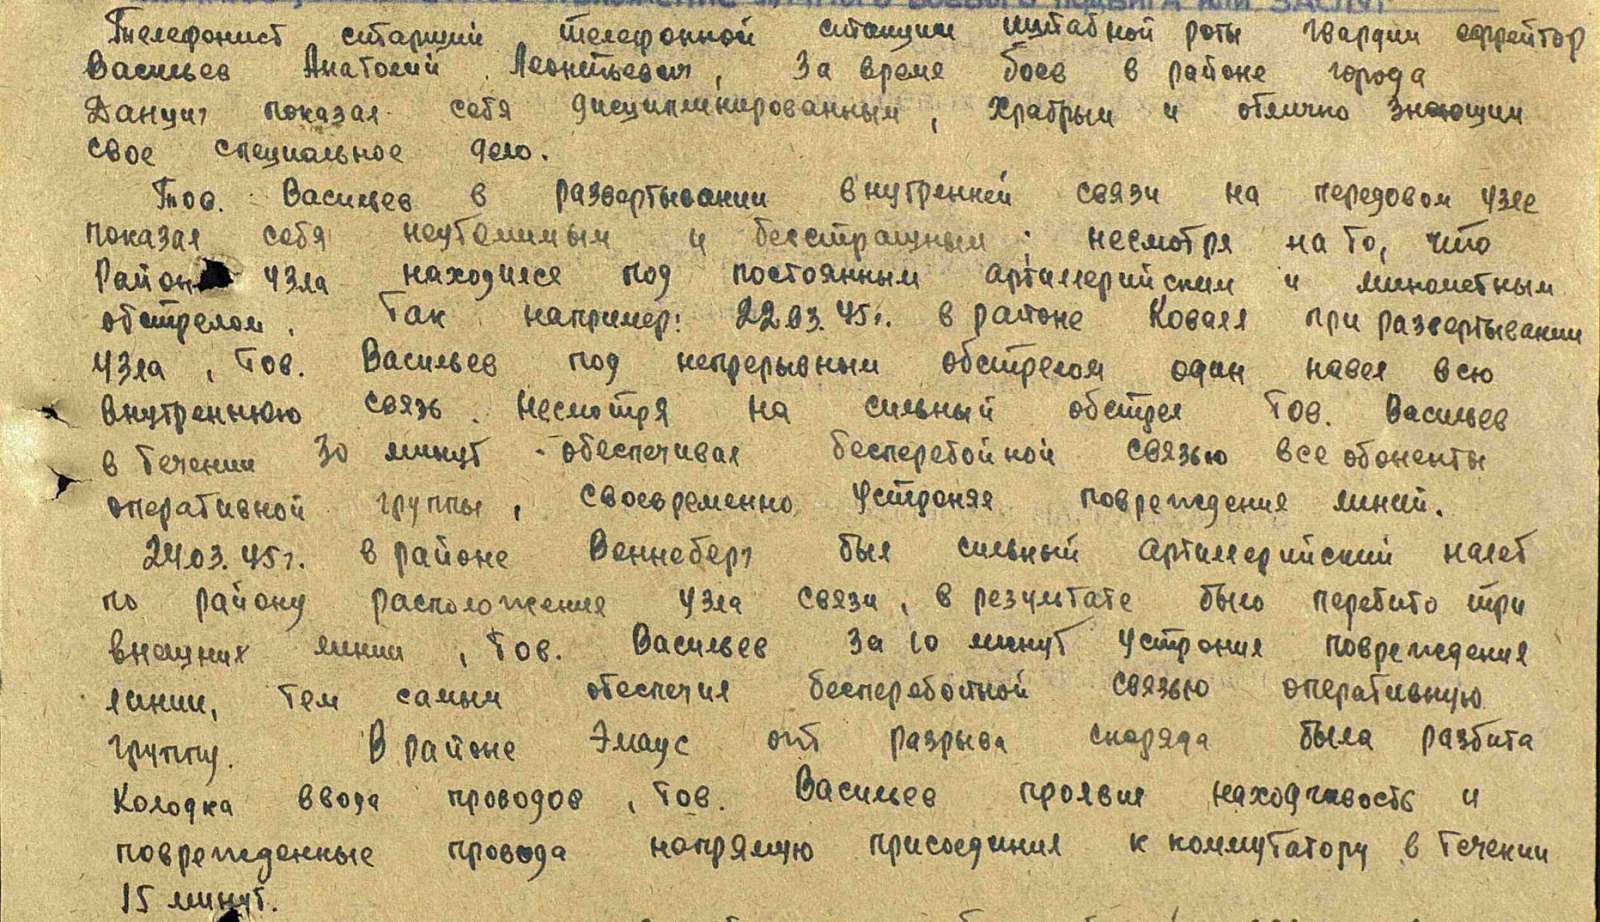 ИЗЛОЖЕНИЕ ЛИЧНОГО БОЕВОГО ПОДВИГА ИЛИ ЗАСЛУГ
Телефонист старший телефонной станции штабной роты гвардии ефрейтор
Васильев Анатолий Леонтьевич, за время боев в районе города
Данциг показал себя дисциплинированным, храбрым и отлично знающим
свое специальное дело.
Тов. Васильев в развертывании внутренней связи на передовом узле
показал себя неутомимым и бесстрашным, несмотря на то, что
район узла находился под постоянным артиллерийским и минометным
обстрелом. Так например: 22.03.45г. в районе Коваля при развертывании
узла, тов. Васильев под непрерывным обстрелом один навел всю
внутреннюю связь. Несмотря на сильный обстрел тов. Васильев
в течении 30 минут обеспечивал бесперебойной связью все обоненты
оперативной группы, своевременно устраняя повреждения линий.
24.03.45г. в районе Веннеберг был сильный артиллерийский налет
по району расположения узла связи, в результате было перебито три
внешних линии, тов. Васильев за 10 минут устранил повреждения
линии, тем самым обеспечил бесперебойной связью оперативную
группу. В районе Эмаус от разрыва снаряда была разбита
колодка ввода проводов, тов. Васильев проявил находчивость и
поврежденные провода напрямую присоединил к коммутатору в течении
15 минут.